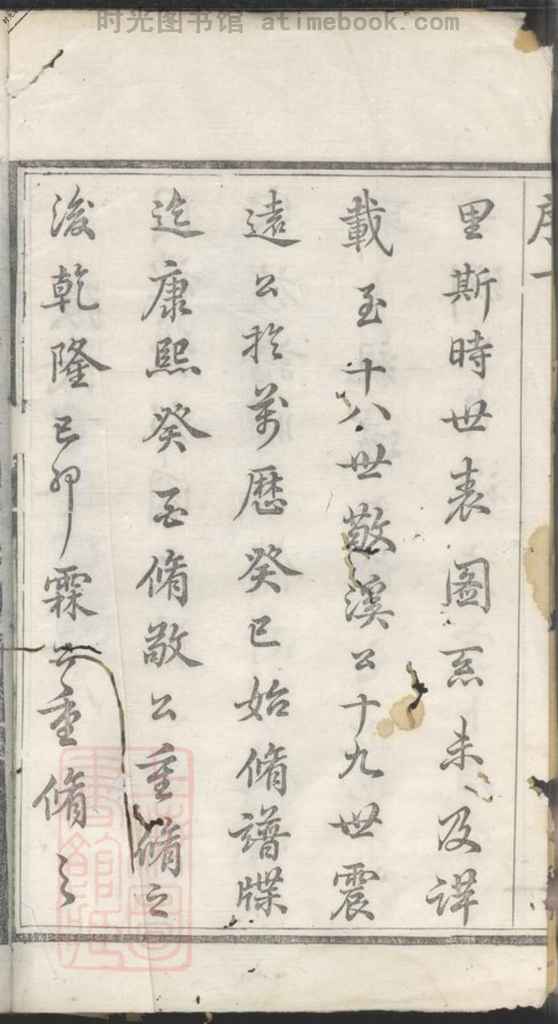 时光图书馆 atimebook.com
序一
里斯時世表圖系未及詳
載至十八世敬溪公十九世震
遠公於萬歷癸巳始脩譜牒
迄康熙癸脩敬公重脩之
後乾隆己卯霖公重脩之